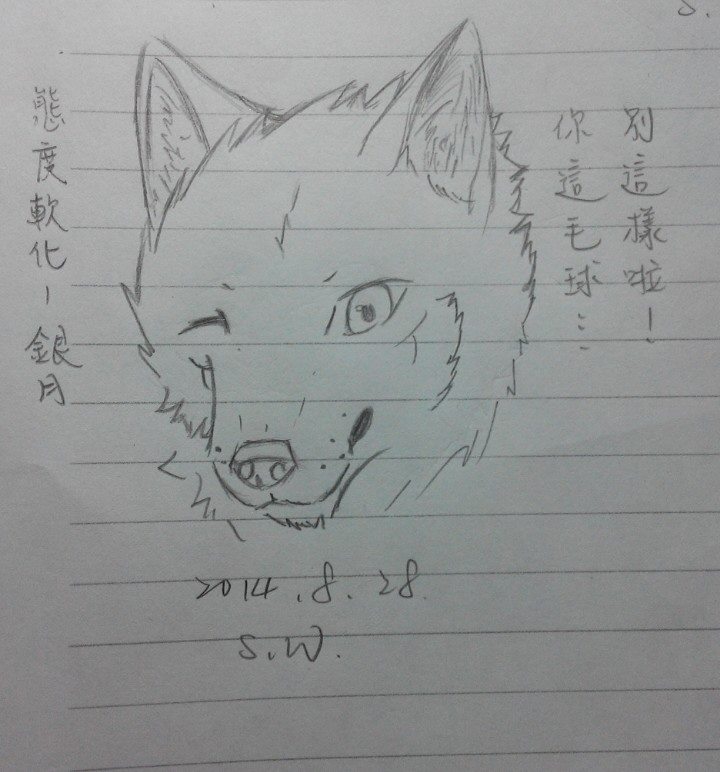 S.
別這樣啦！
你這毛球…
態度軟化－銀月
2014.8.28.
S.W.